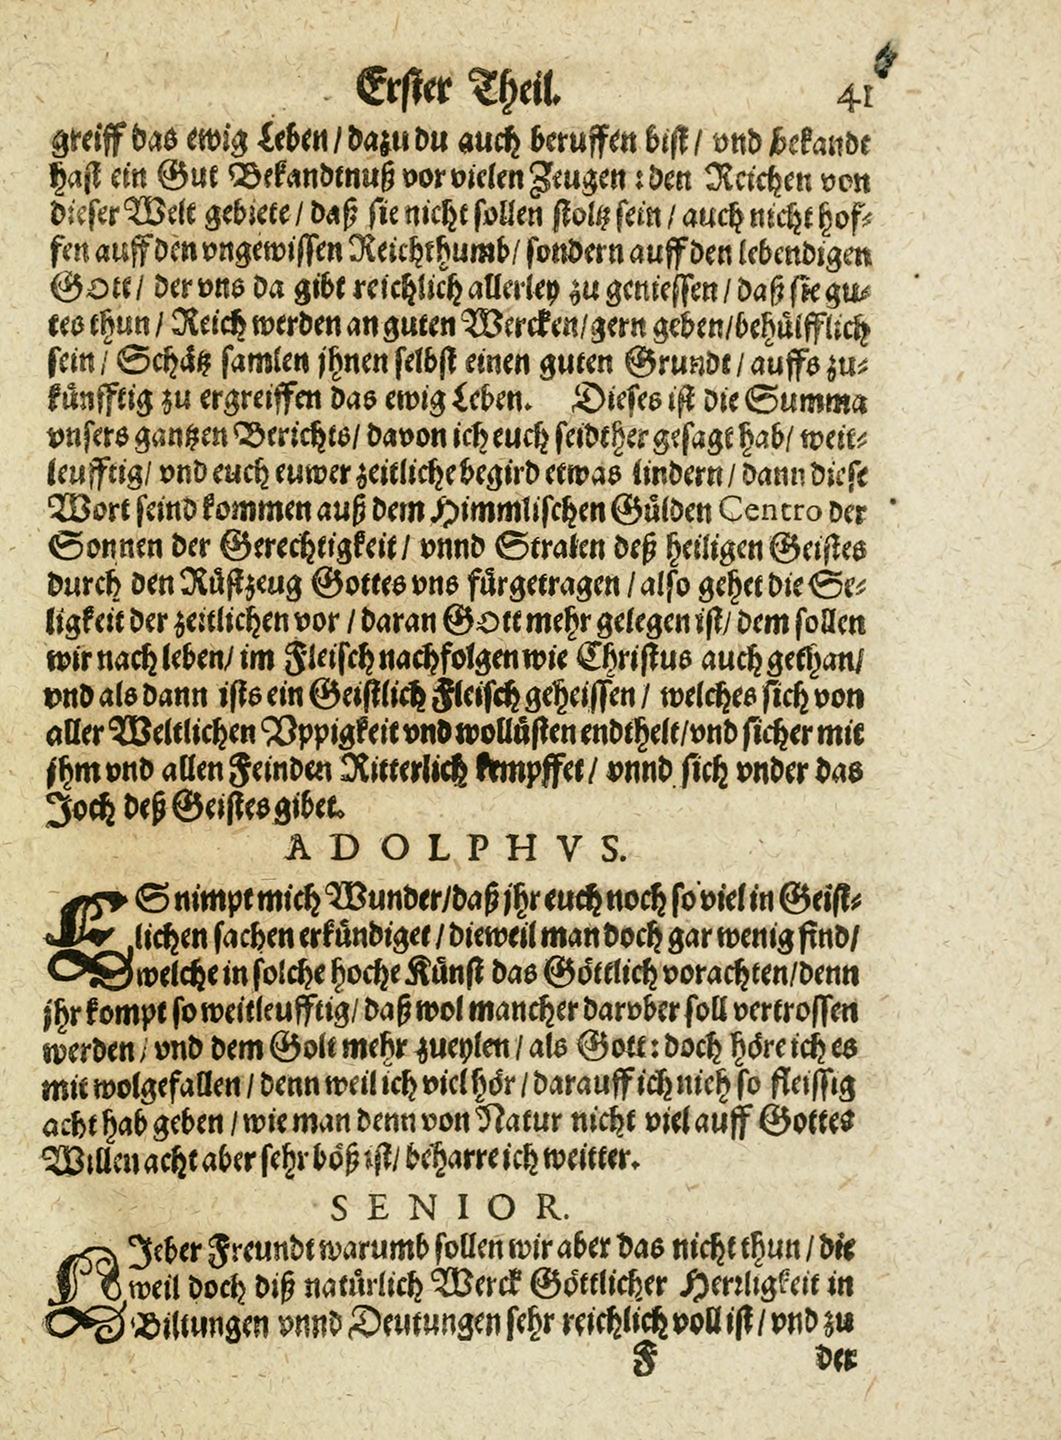 Erster Theil. 41
greiff das ewig Leben / dazu du auch beruffen bist / vnd bekandt
hast ein Gut Bekandtnuß vor vielen Zeugen : den Reichen von
dieser Welt gebiete / daß sie nicht sollen stoltz sein / auch nicht hof⸗
fen auff den vngewissen Reichthumb / sondern auff den lebendigen
GOtt / der vns da gibt reichlich allerley zu geniessen / daß sie gu⸗
tes thun / Reich werden an guten Wercken / gern geben / behülfflich
sein / Schätz samlen jhnen selbst einen guten Grundt / auffs zu⸗
künfftig zu ergreiffen das ewig Leben. Dieses ist die Summa
vnsers gantzen Berichts / davon ich euch seidther gesagt hab / weit⸗
leufftig / vnd euch euwer zeitliche begird etwas lindern / dann diese
Wort seind kommen auß dem Himmlischen Gülden Centro der
Sonnen der Gerechtigkeit / vnnd Stralen deß heiligen Geistes
durch den Rüstzeug Gottes vns fürgetragen / also gehet die Se⸗
ligkeit der zeitlichen vor / daran GOtt mehr gelegen ist / dem sollen
wir nach leben / im Fleisch nachfolgen wie Christus auch gethan /
vnd als dann ists ein Geistlich Fleisch geheissen / welches sich von
aller Weltlichen Vppigkeit vnd wollüsten endthelt / vnd sicher mit
jhm vnd allen Feinden Ritterlich kempffet / vnnd sich vnder das
Joch deß Geistes gibet.
ADOLPHVS.
ES nimpt mich Wunder / daß jhr euch noch so viel in Geist⸗
lichen sachen erkündiget / dieweil man doch gar wenig find /
welche in solche hoche Künst das Göttlich vorachten / denn
jhr kompt so weitleufftig / daß wol mancher darvber soll vertrossen
werden / vnd dem Golt mehr zueylen / als Gott : doch höre ich es
mit wolgefallen / denn weil ich viel hör / darauff ich nieh so fleissig
acht hab geben / wie man denn von Natur nicht viel auff Gottes
Willen acht aber sehr böß ist / beharre ich weitter.
SENIOR.
LJeber Freundt warumb sollen wir aber das nicht thun / die
weil doch diß natürlich Werck Göttlicher Herrligkeit in
Biltungen vnnd Deutungen sehr reichlich voll ist / vnd zu
F der